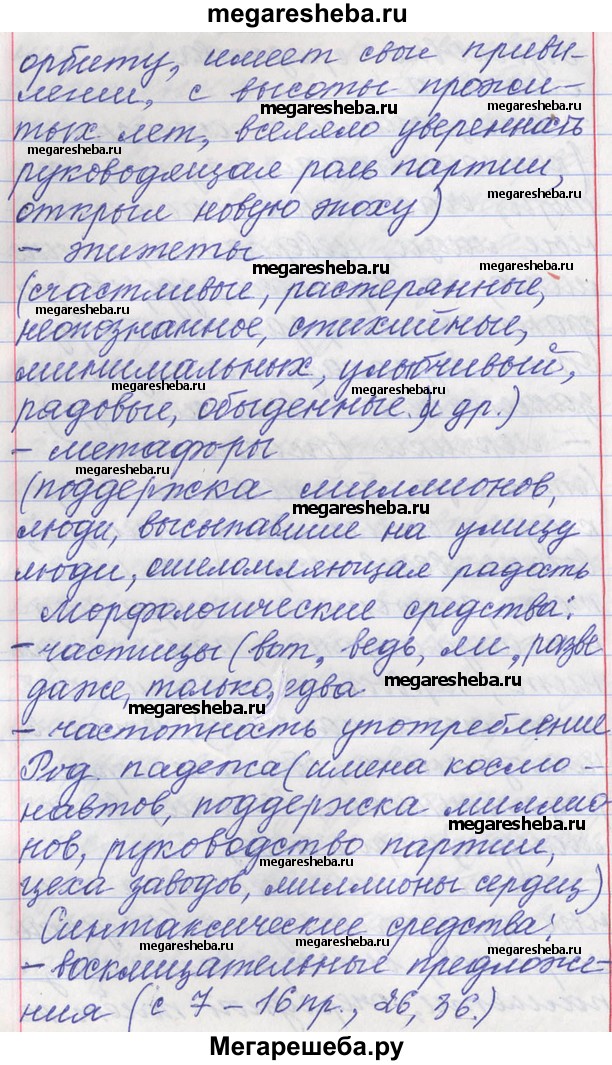 megaresheba.ru
орбиту, имеет свои приви-
легии, с высоты прожи-
megaresheba.ru
megaresheba.ru
тых лет, вселяло уверенность
megaresheba.ru
руководящая роль партии,
megaresheba.ru
открыл новую эпоху)
- эпитеты
megaresheba.ru
megaresheba.ru
(счастливые, растерянные,
неопознанное, стихийные,
megaresheba.ru
megaresheba.ru
минимальных, улыбчивый,
megaresheba.ru
рядовые, обыденные и др.)
- метафоры
megaresheba.ru
megaresheba.ru
(поддержка миллионов,
megaresheba.ru
люди, высыпавшие на улицу
люди, ошеломляющая радость
megaresheba.ru
Морфологические средства:
- частицы (вот, ведь, ли, разве
даже, только, едва
megaresheba.ru
megaresheba.ru
- частотность употребление
Род. падежа (имена космо-
навтов, поддержка миллио-
megaresheba.ru
нов, руководство партии,
megaresheba.ru
цеха заводов, миллионы сердец)
Синтаксические средства:
megaresheba.ru
megaresheba.ru
- восклицательные предложе-
megaresheba.ru
ния (с 7 - 16 пр., 26, 36.)
Мегарешеба.ру